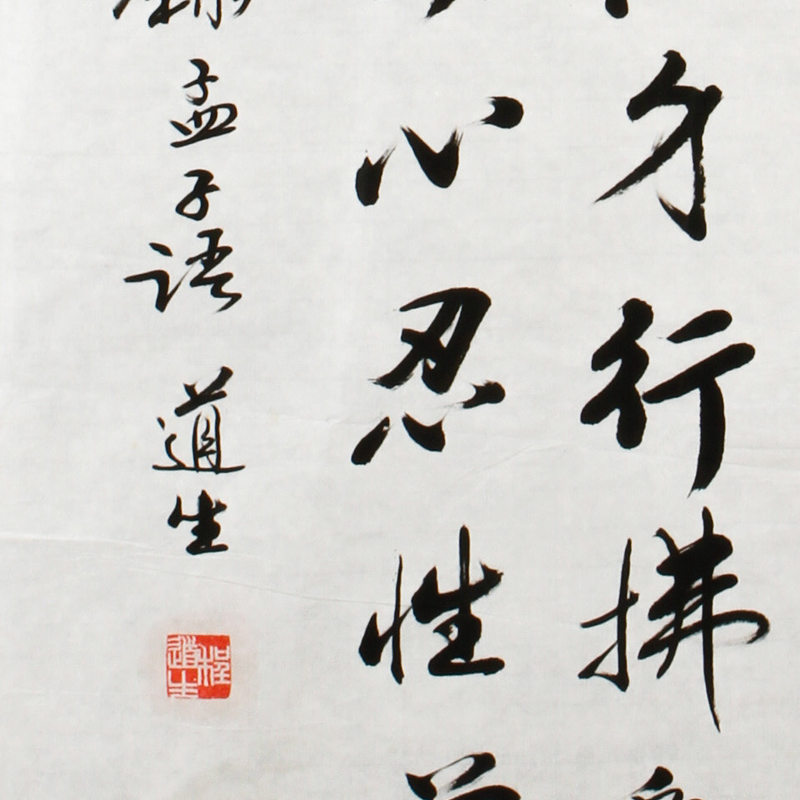 身行拂
心忍性
孟子语 道生
程道生